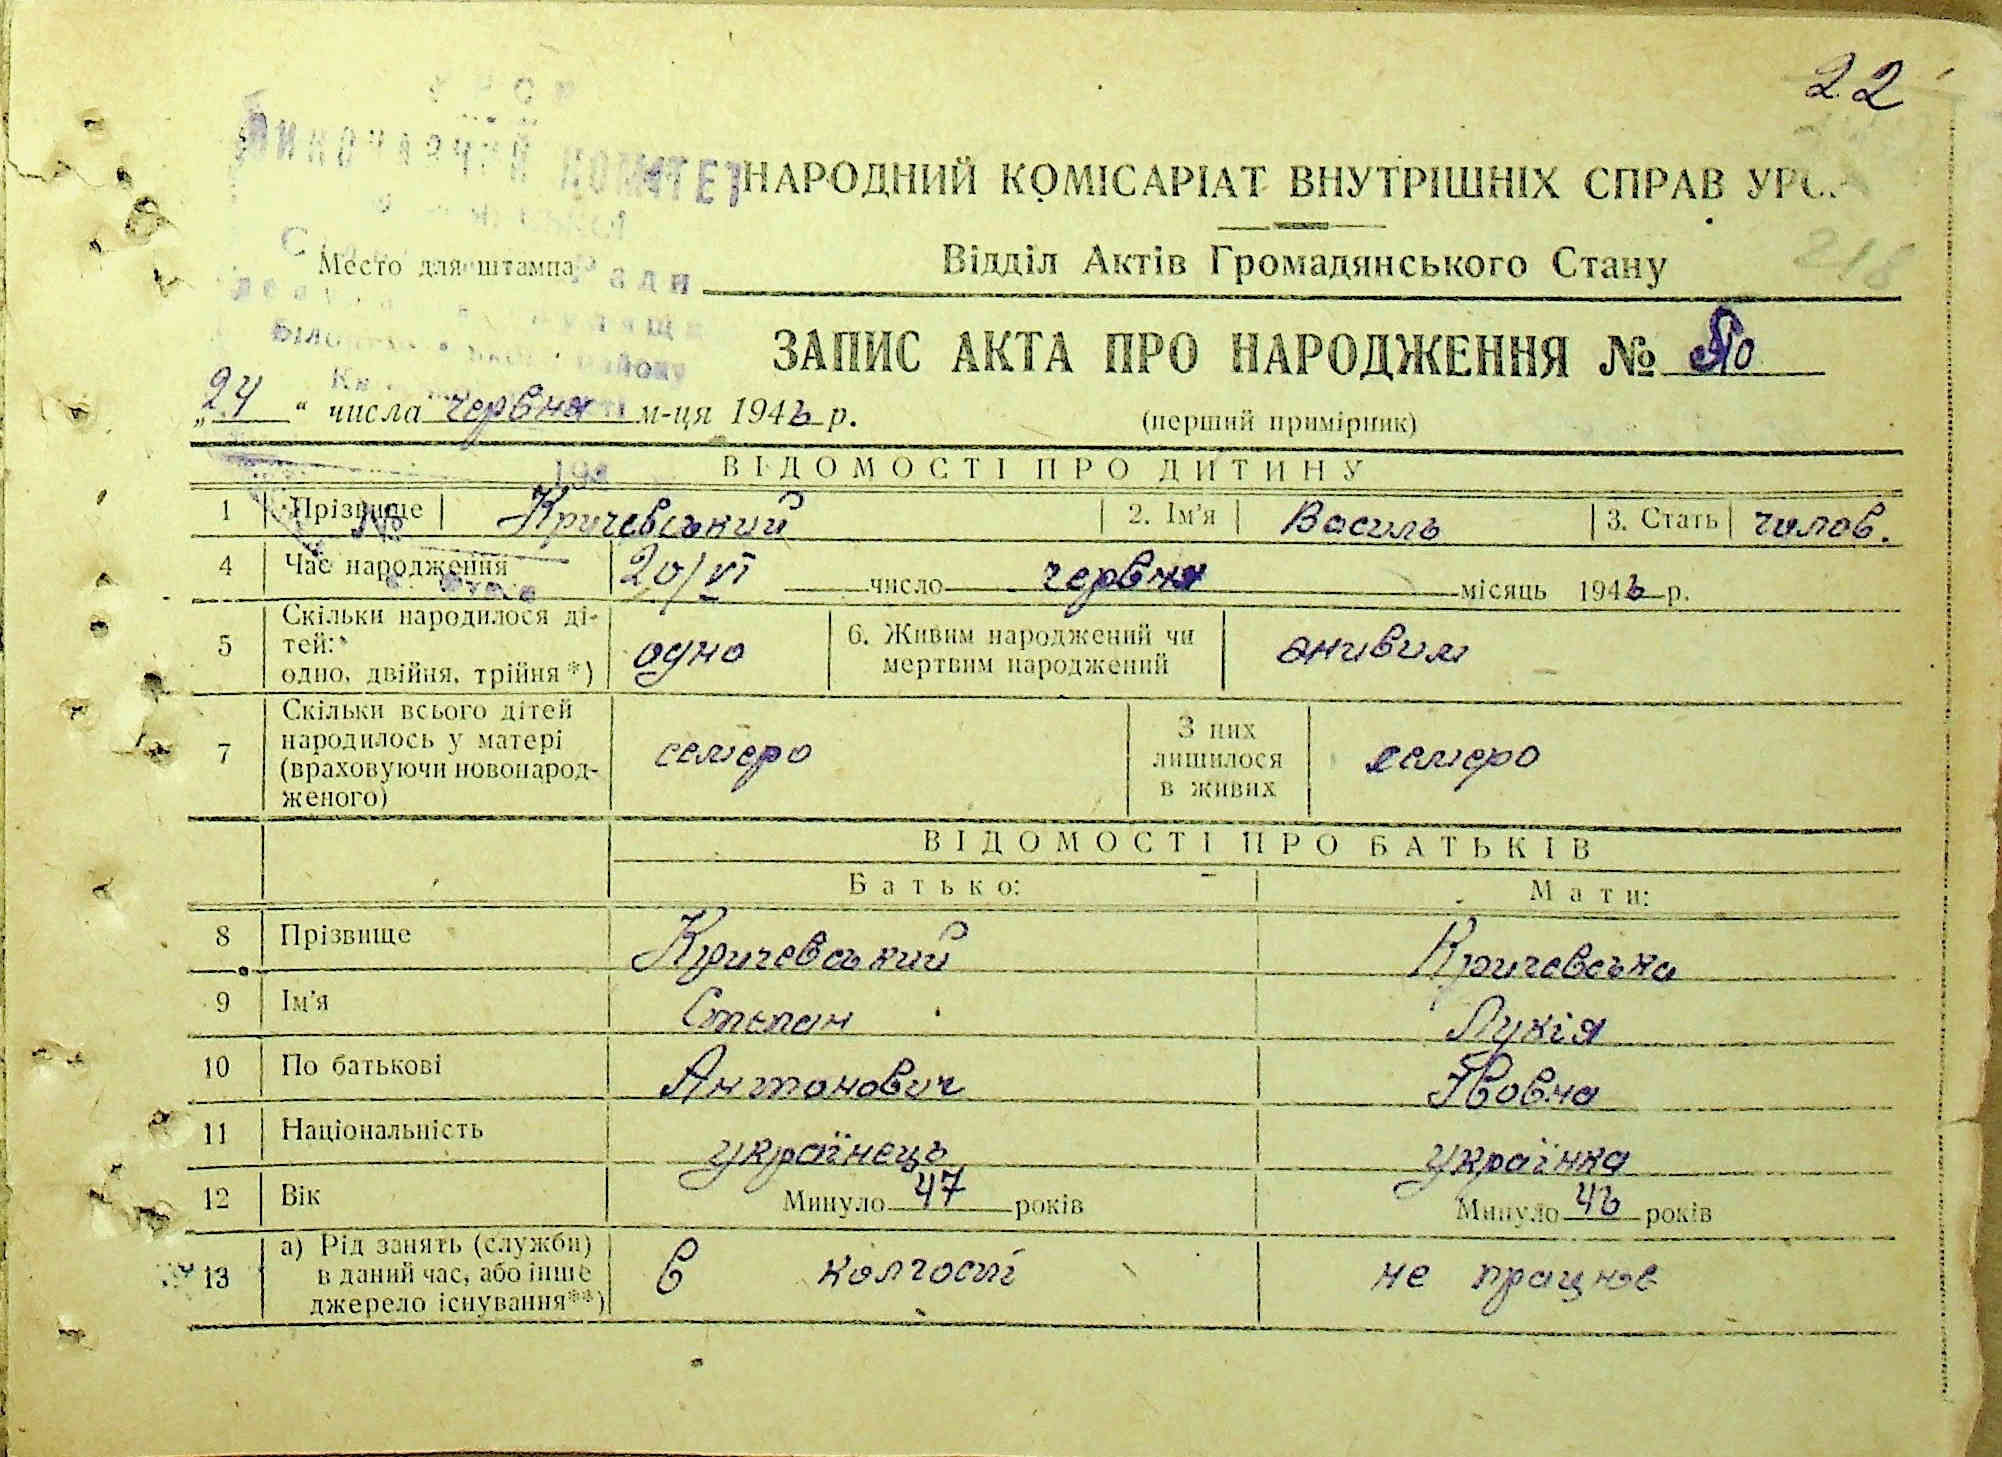 22
ВИКОНАВЧИЙ КОМІТЕТ
НАРОДНИЙ КОМІСАРІАТ ВНУТРІШНІХ СПРАВ УРСР
218
Место для штампа
Відділ Актів Громадянського Стану
ЗАПИС АКТА ПРО НАРОДЖЕННЯ №
„24“ числа червня м-ця 1946 р.
(перший примірник)
ВІДОМОСТІ ПРО ДИТИНУ
1 Прізвище Кричевський 2. Ім'я Василь 3. Стать чолов.
4 Час народження 20/VI число червня місяць 1946 р.
5 Скільки народилося ді-
тей:
одно, двійня, трійня *) одно 6. Живим народжений чи
мертвим народжений живим
7 Скільки всього дітей
народилось у матері
(враховуючи новонарод-
женого) семеро З них
лишилося
в живих семеро
ВІДОМОСТІ ПРО БАТЬКІВ
Батько: Мати:
8 Прізвище Кричевський Кричевська
9 Ім'я Степан Лукія
10 По батькові Антонович Ївовна
11 Національність українець українка
12 Вік Минуло 47 років Минуло 46 років
13 а) Рід занять (служби)
в даний час, або інше
джерело існування**) в колгоспі не працює